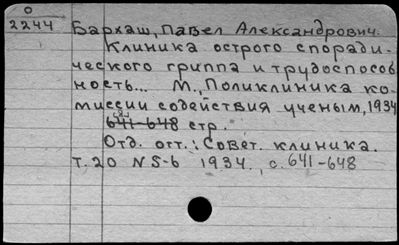 0
2244 Бархаш, Павел Александрович.
Клиника острого споради-
ческого гриппа и трудоспособ
ность... М., Поликлиника ко-
миссии содействия ученым, 1934
641-648 стр.
Отд. отт.: Совет. клиника.
т. 20 N 5-6 1934. с. 641-648